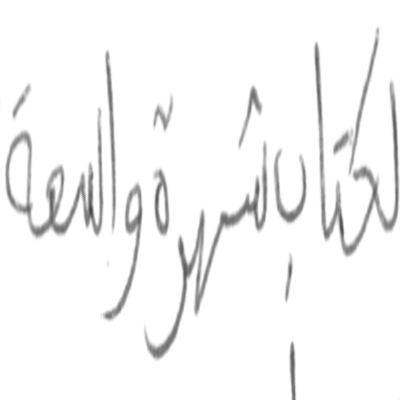 لكتاب شهرة واسعة